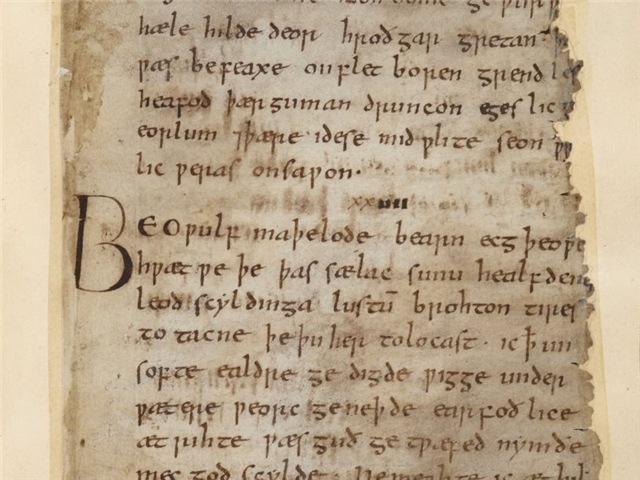 dome ge ƿurþ
hæle hilde deor hroðgar gretan
ƿæs be feaxe on flet boren grendles
heafod þær guman druncon egeslic
eorlum ⁊ þære idese mid ƿlite seon
lic ƿeras onsaƿon.
xxiiii
BEOƿulf maþelode bearn ecg þeoƿe
hƿæt ƿe þe þas sælac sunu healfden
leod scyldinga lustū brohton tires
to tacne þe þu her to locast. ic ꝥ un
softe ealdre ge digde ƿigge under
ƿætere ƿeorc ge neþde earfoð lice
æt rihte ƿæs guð ge tƿæfed nymðe
mec god scylde. Ne mehte ic æt hil